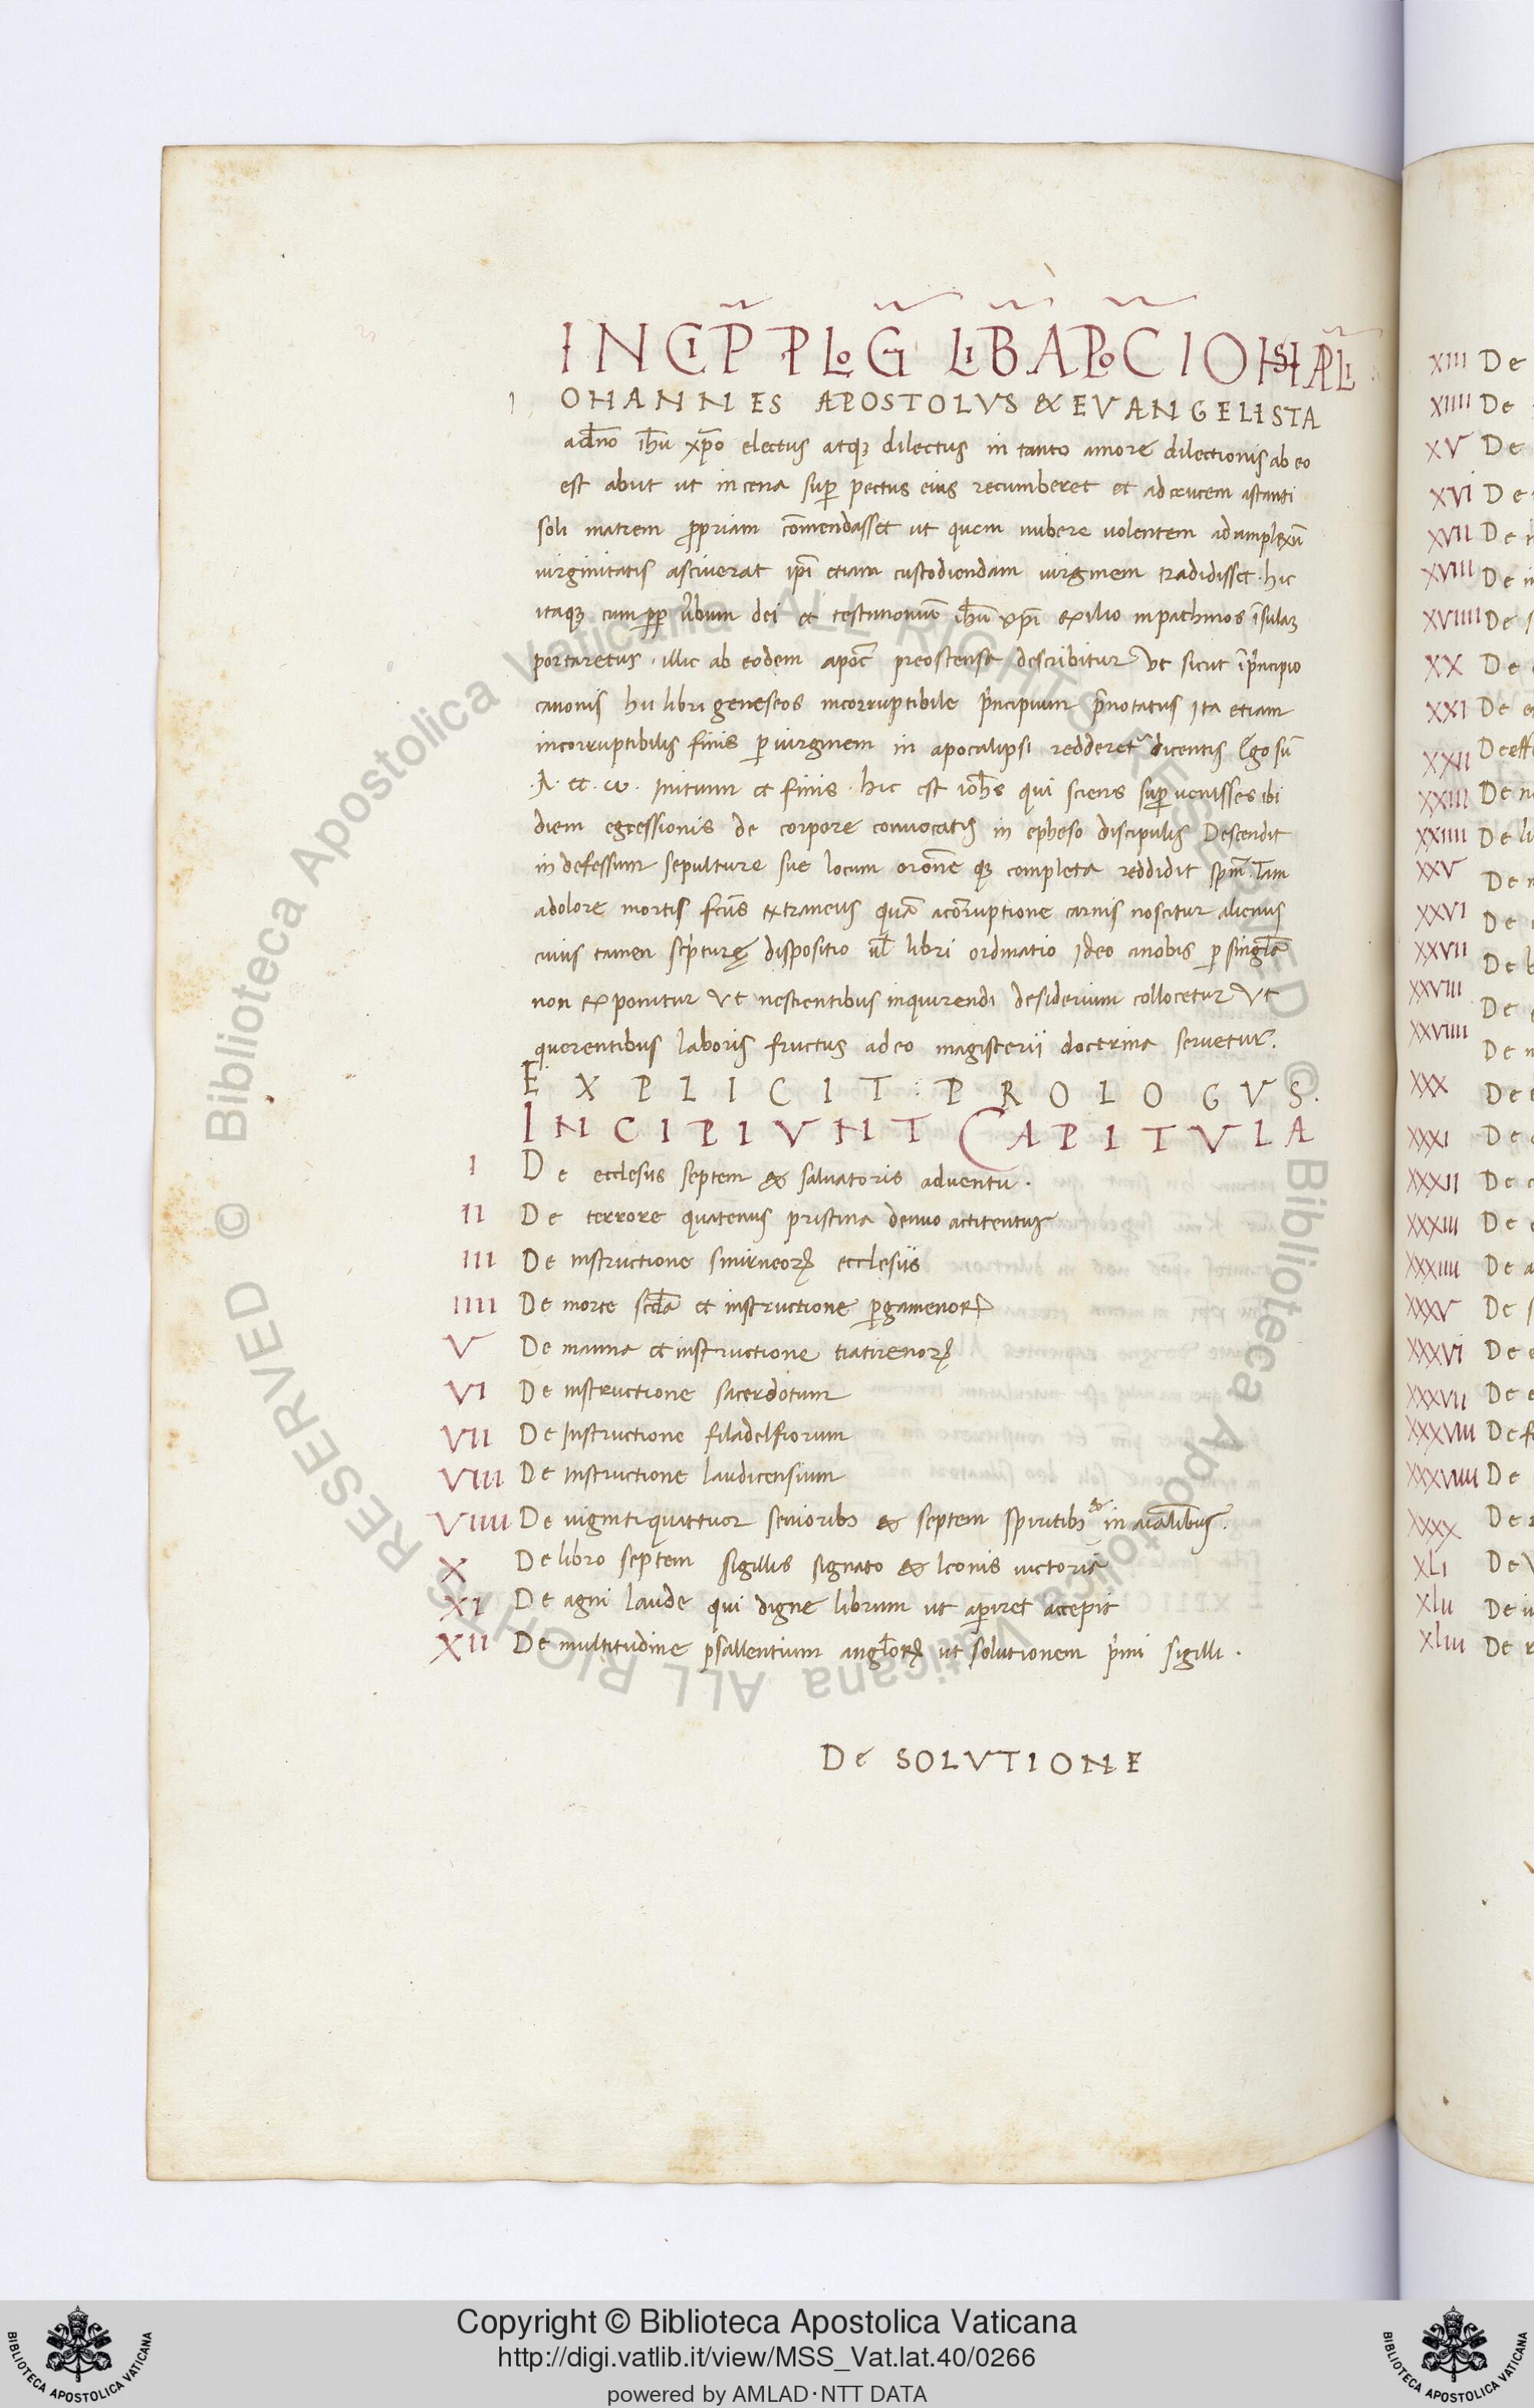 INCIP̃ PLOG̃ LIB̃ APOC̃ IOHIS APLI
I OHANNES APOSTOLVS & EVANGELISTA
ad͞no ih̄u xp̄o electus atq; dilectus in tanto amore dilectionis ab eo
est abut ut in cena sup̱ pectus eius recumberet et ad crucem astanti
soli matrem p̱priam com̄endasset ut quem nubere uolentem ad amplexū
uirginitatis asciuerat ip̄i etiam custodiendam uirginem tradidisset · hic
itaq; cum pp̱ u̓bum dei et testimoniū ih̄u xp̄i exilio in pathmos īsulaʒ
portaretur · illic ab eodem apoc̄ preostensa describitur Vt sicut ī p̓ncipio
canonis hu libri geneseos incorruptibile p̓ncipium p̄notatus Ita etiam
incorruptibilis finis ꝑ uirginem in apocalipsi redderet᷑ dicentis Ego sū
·A· et ·ω· Initium et finis · hic est ioh̄s qui sciens sup̱ uenisses ibi
diem egressionis de corpore conuocatis in epheso discipulis Descendit
in defessum sepulture sue locum oron̄e q; completa reddidit sp̄m. Tam
a dolore mortis fc̄us extraneus quā a cor̄uptione carnis noscitur alienus
cuius tamen sc̓pturę dispositio ul̄ libri ordinatio Ideo a nobis ꝑ singl̄a
non exponitur Vt nescientibus inquirendi desiderium collocetur Vt
querentibus laboris fructus a deo magisterii doctrina seruetur.
EXPLICIT : PROLOGVS.
INCIPIVNT CAPITVLA
I De ecclesiis septem & saluatoris aduentu ·
II De terrore quatenus pristina denuo actitentur
III De instructione smirneoꝝ ecclesiis
IIII De morte scd̄a et instructione ꝑgamenoꝝ
V De manna et instructione tiatirenoꝝ
VI De instructione sacerdotum
VII De Instructione filadelfiorum
VIII De instructione laudicensium
VIIII De uiginti quattuor senioribʒ & septem spiritibʒ & in aīalibus.
X De libro septem sigillis signato & leonis uictoria
XI De agni laude qui digne librum ut aꝑiret accepit
XII De multitudine psallentium angl̄oꝝ ut solutionem p̓mi sigilli ·
De SOLVTIONE
XIII De
XIIII De
XV De
XVI De
XVII De
XVIII De
XVIIII De
XX De
XXI De
XXII De eff
XXIII De
XXIIII De li
XXV De
XXVI De
XXVII De
XXVIII De
XXVIIII De
XXX De
XXXI De
XXXII De
XXXIII De
XXXIIII De
XXXV De
XXXVI De
XXXVII De
XXXVIII De
XXXVIIII De
XXXX De
XLI De
XLII De
XLIII De
© Biblioteca Apostolica Vaticana ALL RIGHTS RESERVED © Biblioteca Apostolica Vaticana ALL RIGHTS RESERVED
Copyright © Biblioteca Apostolica Vaticana
http://digi.vatlib.it/view/MSS_Vat.lat.40/0266
powered by AMLAD·NTT DATA
BIBLIOTECA APOSTOLICA VATICANA
BIBLIOTECA APOSTOLICA VATICANA